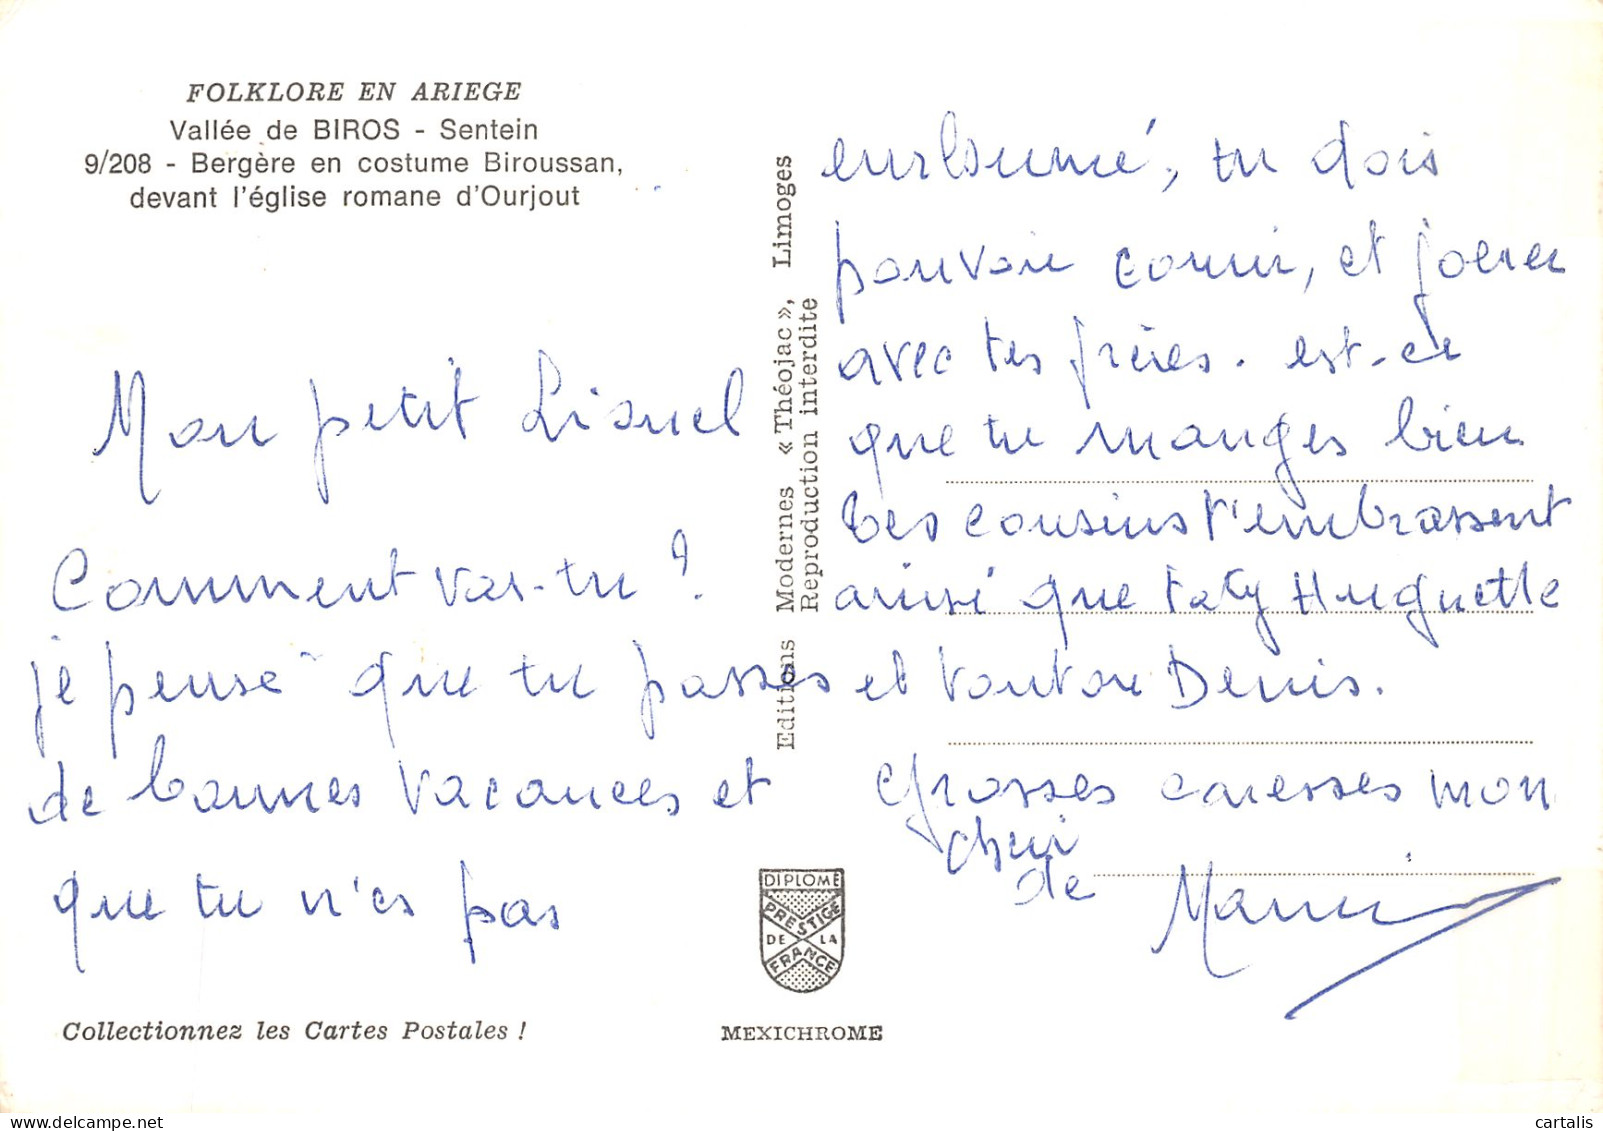 FOLKLORE EN ARIEGE
Vallée de BIROS - Sentein
9/208 - Bergère en costume Biroussan,
devant l'église romane d'Ourjout
Mon petit Lionel
Comment vas-tu ?
je pense que tu passes
de bonnes vacances et
que tu n'es pas
Collectionnez les Cartes Postales !
Editions Modernes « Théojac », Limoges
Reproduction interdite
DIPLOME
PRESTIGE
DE LA
FRANCE
MEXICHROME
enrhumé, tu dois
pouvoir courir, et jouer
avec tes frères. est-ce
que tu manges bien
tes cousins t'embrassent
ainsi que taty Huguette
et tonton Denis.
grosses caresses mon
cheri
de
cartalis